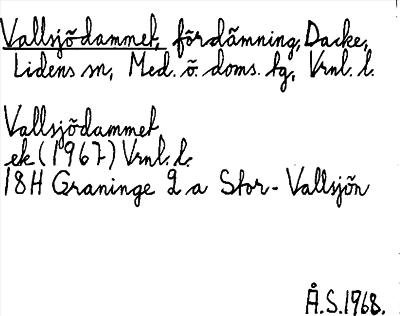 Vallsjödammet, fördämning, Dacke,
Lidens sn, Med. ö. doms. tg, Vrnl. l.
Vallsjödammet
ek (1967) Vrnl. l.
18H Graninge 2 a Stor-Vallsjön
Å.S. 1968.